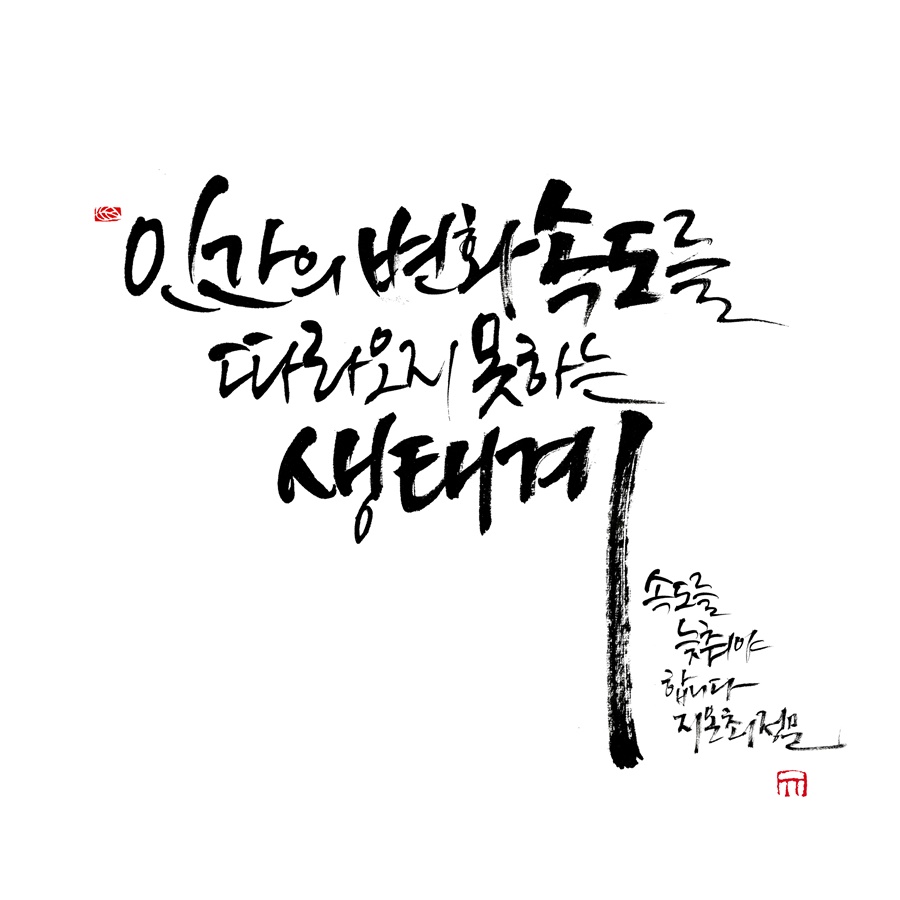 인간의 변화 속도를
따라오지 못하는
생태계
속도를
늦춰야
합니다
지온 최정문